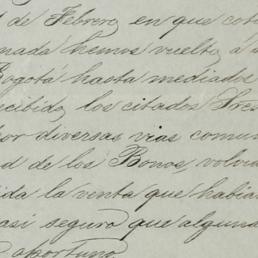 1 de Febrero, en que coti
mada hemos vuelto á s
Bogotá hasta mediados
ecibido los citados Sres
por diversas vias comun
d de los Bonos, volvie
ida la venta que habian
casi seguro que alguna
oportuno